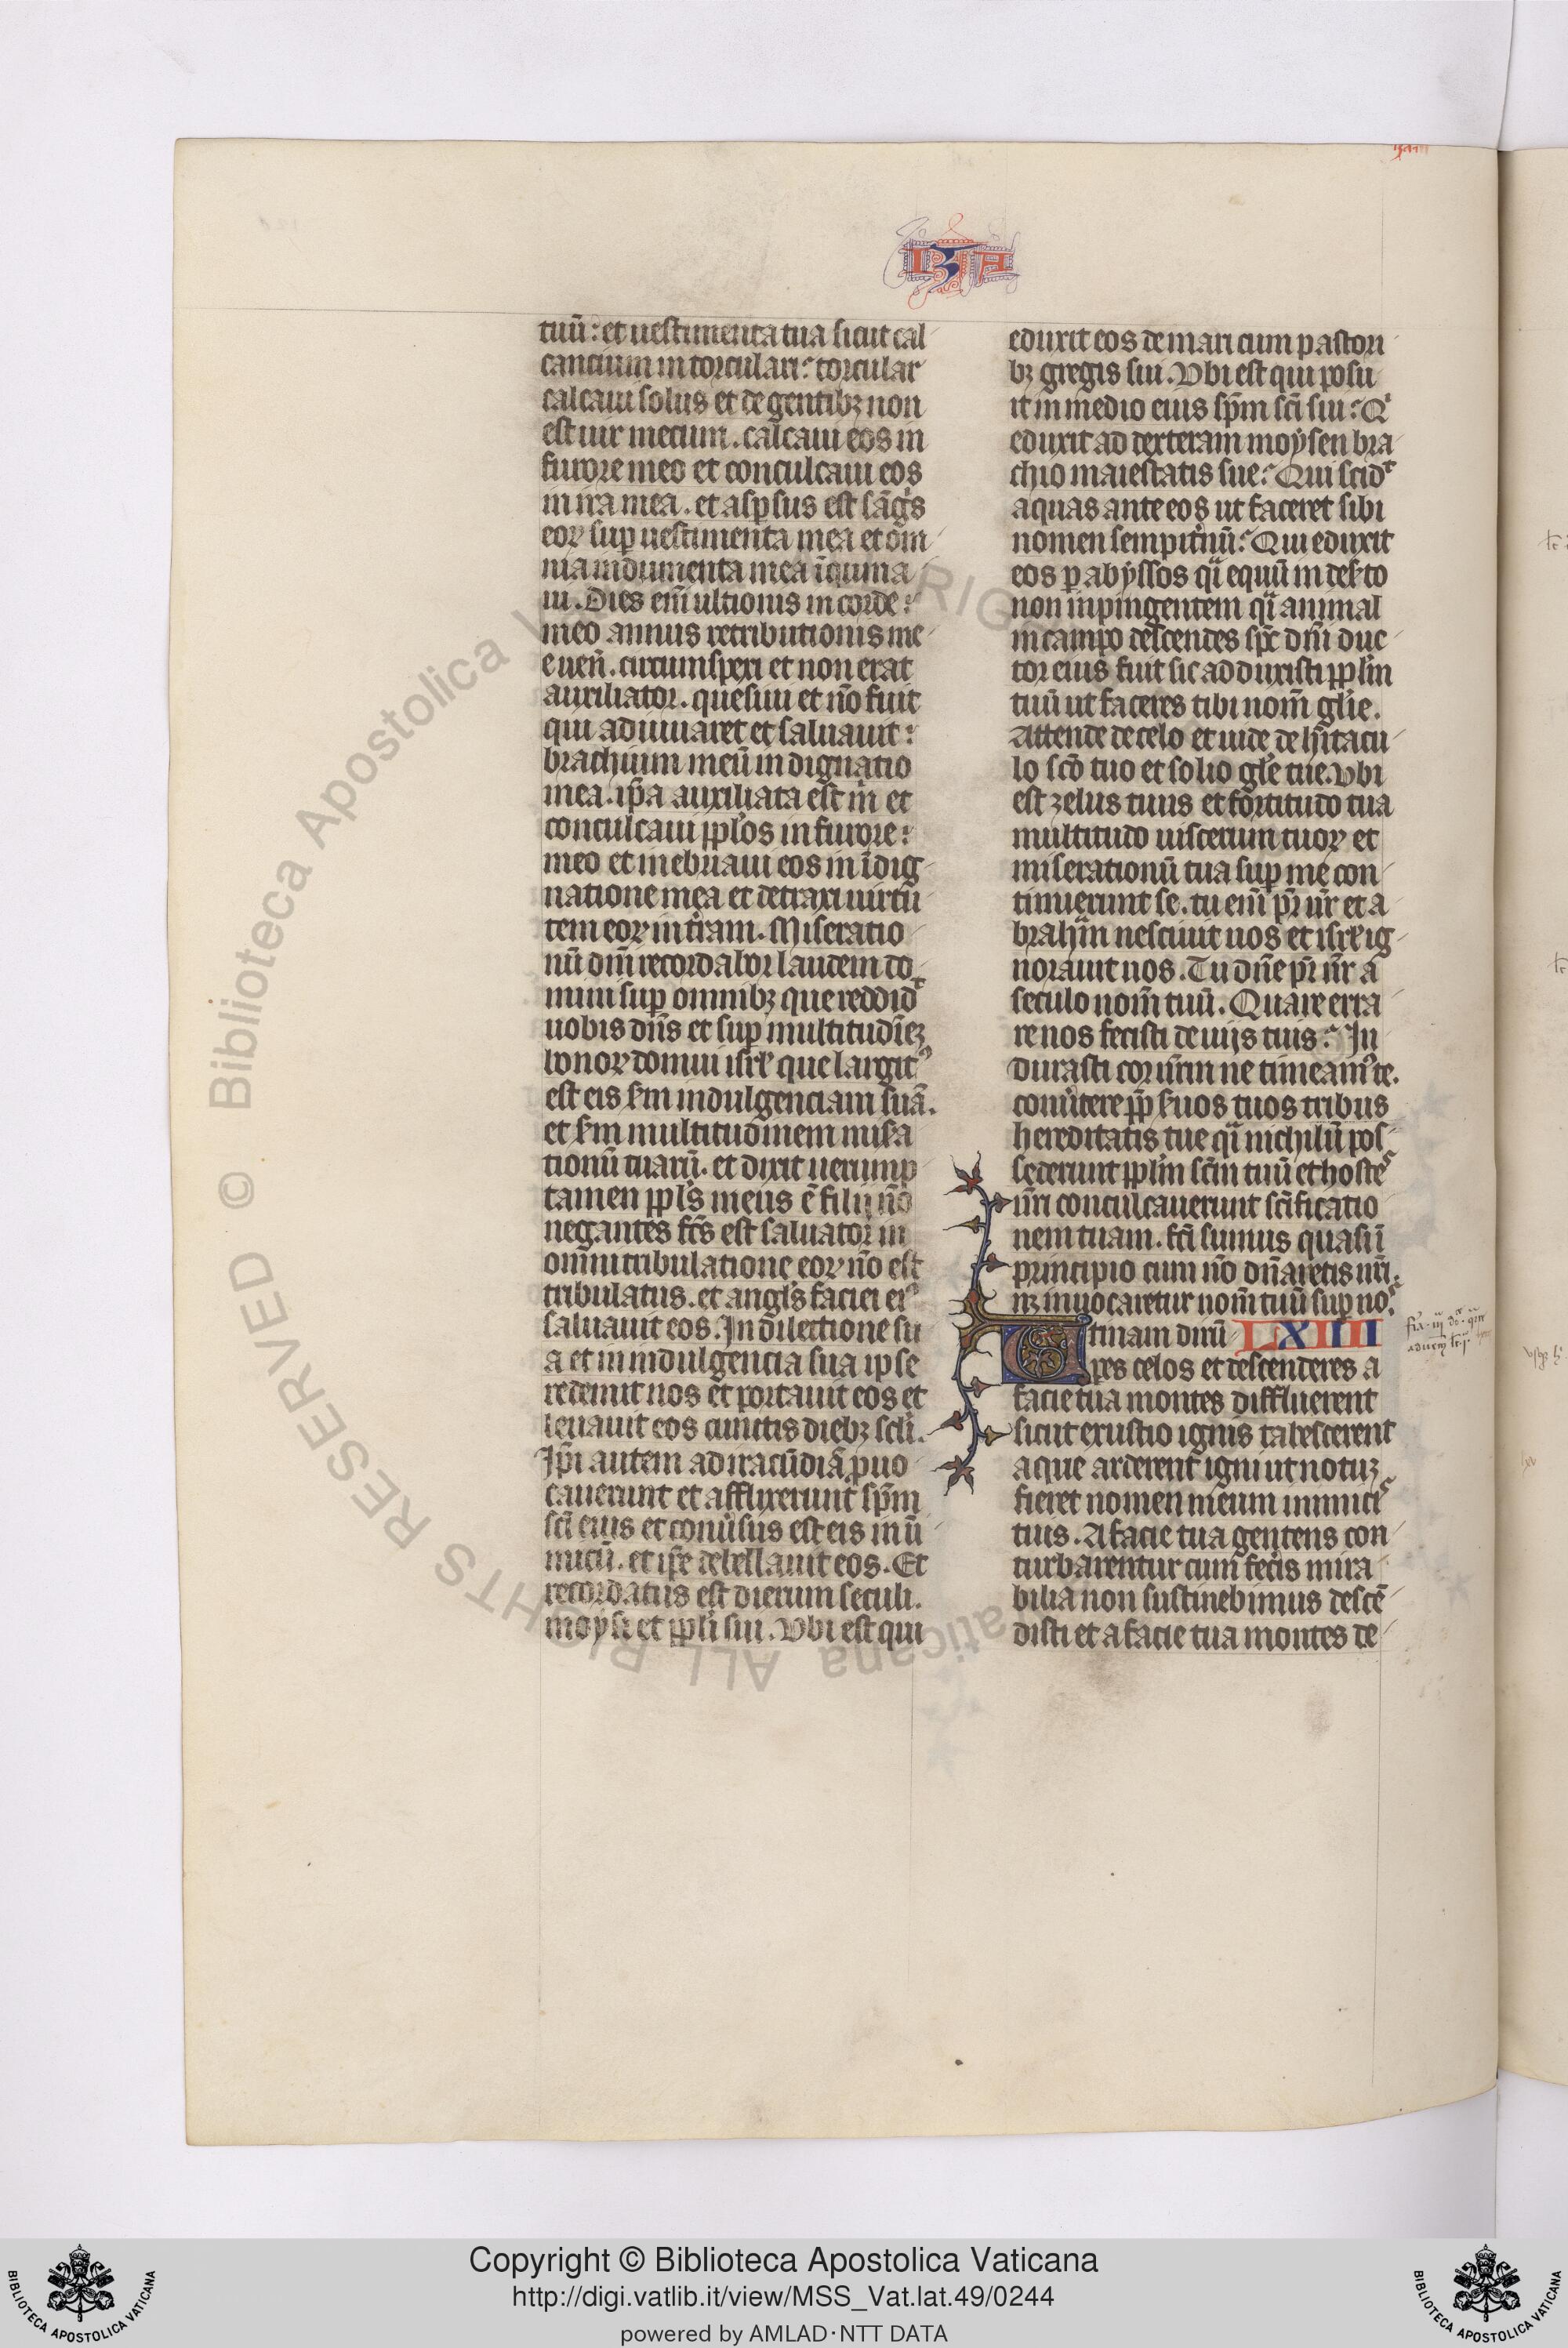 IZA
tuū: et uestimenta tua sicut cal
cantium in torculari: torcular
calcaui solus et de gentibꝫ non
est uir mecum. calcaui eos in
furore meo et conculcaui eos
in ira mea. et asꝑsus est sāgͥs
eoꝝ suꝑ uestimenta mea et om̄
nia indumenta mea īquina
ui. Dies eni᷒ ultionis in corde:
meo annus retributionis me
e ueñ. circumspexi et non erat
auxiliator. quesiui et nō fuit
qui adiuuaret et saluauit:
brachium meū indignatio
mea. ip̄a auxiliata est m̄ et
conculcaui pp̄los in furore:
meo et inebriaui eos in īdig
natione mea et detraxi uirtū
tem eoꝝ in t̄ram. Miseratio
nū dn̄i recordabor laudem do
mini suꝑ omnibꝫ que reddidᵗ
uobis dn̄s et suꝑ multitudīeꝫ
bonoꝝ domui isrł que largitꝰ
est eis s̄m indulgenciam suā.
et s̄m multitudinem misa
tionū tuarū. et dixit uerump
tamen pp̄ls meus ē filij nō
negantes fc̄s est saluator in
om̄i tribulatione eoꝝ nō est
tribulatus. et angl̄s faciei eiꝰ
saluauit eos. In dilectione su
a et in indulgencia sua ipse
redemit nos et portauit eos et
leuauit eos cunctis diebꝫ scl̄i.
Ip̄i autem ad iracūdiā ꝓuo
cauerunt et afflixerunt sp̄m
sc̄i eius et conūsus est eis in ī
micū. et ip̄e debellauit eos. Et
recordatus est dierum seculi.
moysi et pp̄li sui. Vbi est qui
eduxit eos de mari cum pastori
bꝫ gregis sui. Vbi est qui posu
it in medio eius sp̄m sc̄i sui: Qͥ
eduxit ad dexteram moysen bra
chio maiestatis sue: Qui scidᵗ
aquas ante eos ut faceret sibi
nomen sempit̄nū: Qui eduxit
eos ꝑ abyssos qͣi equū in deẜto
non inpingentem qͣi animal
in campo descendes sp̄c dn̄i duc
tor eius fuit sic adduxisti pp̄lm
tuū ut faceres tibi nom̄ glīe.
Attende de celo et uide de hītacu
lo sc̄o tuo et solio glē tue. vbi
est zelus tuus et fortitudo tua
multitudo uiscerum tuoꝝ et
miserationū tua suꝑ me con
tinuerunt se. tu eni᷒ pr̄ nr̄ et a
brahͣm nesciuit nos et isrł ig
norauit nos. Tu dn̄e pr̄ nr̄ a
seculo nom̄ tuū. Quare erra
re nos fecisti de uijs tuis: In
durasti cor nr̄m ne timeamꝰ te.
conūtere pp̄ ẜuos tuos tribus
hereditatis tue qͣi nichilū pos
sederunt pp̄lm sc̄m tuū et hosteˢ
nr̄i conculcauerunt sc̄ificatio
nem tuam. fc̄i sumus quasi ī
principio cum nō dn̄aretis nr̄i.
nꝫ inuocaretur nom̄ tuū suꝑ noˢ.
Vtinam dirū LXIIII
pes celos et descenderes a
facie tua montes diffluerent
sicut exustio ignis tabescerent
aque arderent igni ut notuꝫ
fieret nomen meum inimiciˢ
tuis. A facie tua gentens con
turbarentur cum fecͥs mira
bilia non sustinebimus descē
disti et a facie tua montes de
Copyright © Biblioteca Apostolica Vaticana
http://digi.vatlib.it/view/MSS_Vat.lat.49/0244
powered by AMLAD·NTT DATA
BIBLIOTECA APOSTOLICA VATICANA
BIBLIOTECA APOSTOLICA VATICANA
© Biblioteca Apostolica Vaticana ALL RIGHTS RESERVED